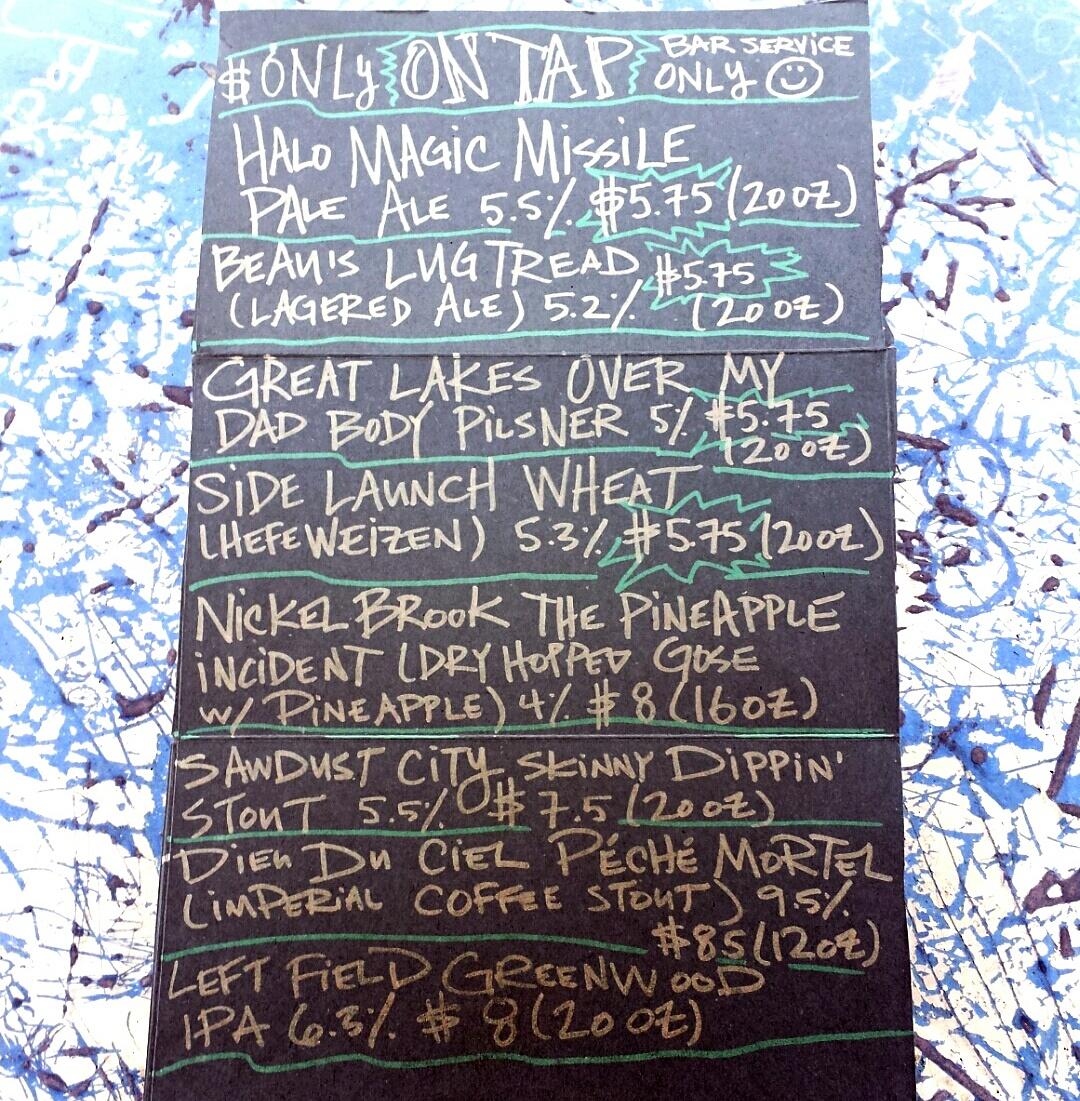 $ONLY ON TAP BAR SERVICE
ONLY
HALO MAGIC MISSILE
PALE ALE 5.5% $5.75 (20 OZ)
BEAU'S LUGTREAD $5.75
(LAGERED ALE) 5.2% (20 OZ)
GREAT LAKES OVER MY
DAD BODY PILSNER 5% $5.75
(20 OZ)
SIDE LAUNCH WHEAT
(HEFEWEIZEN) 5.3% $5.75 (20 OZ)
NICKEL BROOK THE PINEAPPLE
INCIDENT (DRY HOPPED GOSE
W/ PINEAPPLE) 4% $8 (16 OZ)
SAWDUST CITY SKINNY DIPPIN'
STOUT 5.5% $7.5 (20 OZ)
DIEU DU CIEL PÉCHÉ MORTEL
(IMPERIAL COFFEE STOUT) 9.5%
$85 (12 OZ)
LEFT FIELD GREENWOOD
IPA 6.3% $8 (20 OZ)